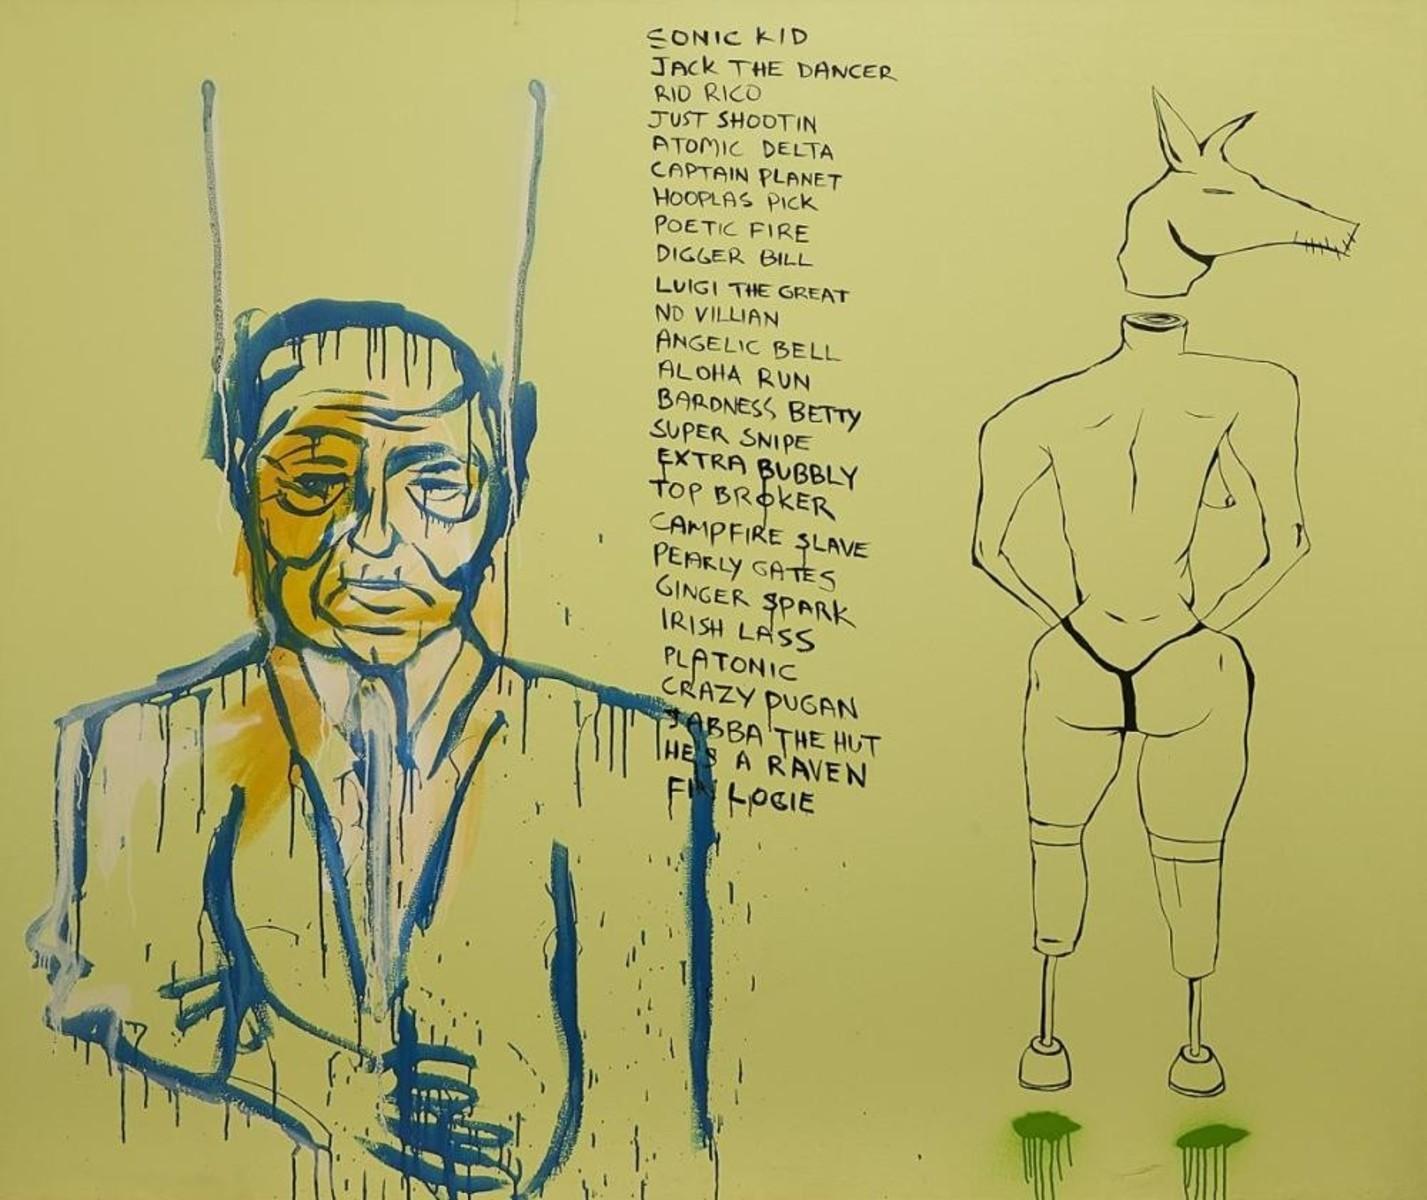 SONIC KID
JACK THE DANCER
RIO RICO
JUST SHOOTIN
ATOMIC DELTA
CAPTAIN PLANET
HOOPLAS PICK
POETIC FIRE
DIGGER BILL
LUIGI THE GREAT
NO VILLIAN
ANGELIC BELL
ALOHA RUN
BARDNESS BETTY
SUPER SNIPE
EXTRA BUBBLY
TOP BROKER
CAMPFIRE SLAVE
PEARLY GATES
GINGER SPARK
IRISH LASS
PLATONIC
CRAZY DUGAN
JABBA THE HUT
HE'S A RAVEN
LOGIE